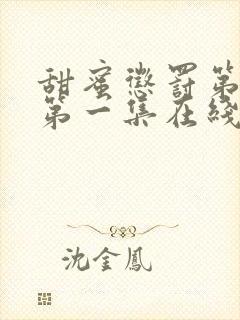 甜蜜懲罰第
第一集在綫
沈金鳳